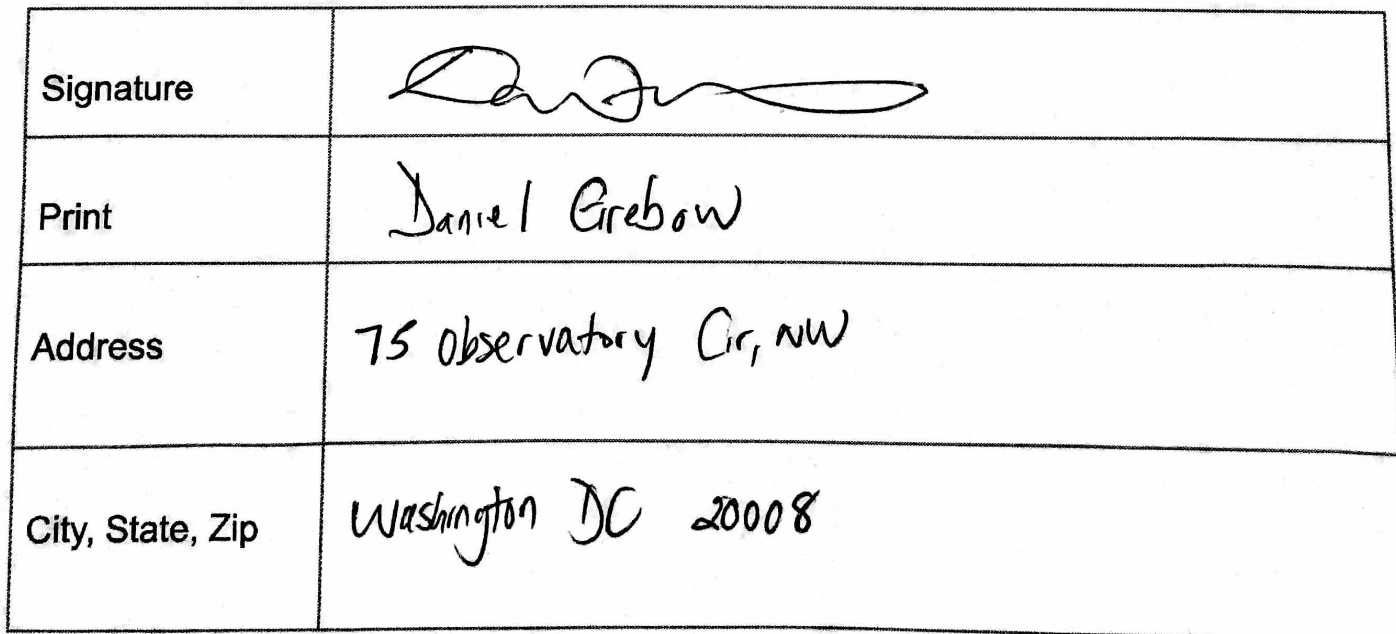 Signature
Print Daniel Grebow
Address 75 Observatory Cir, NW
City, State, Zip Washington DC 20008